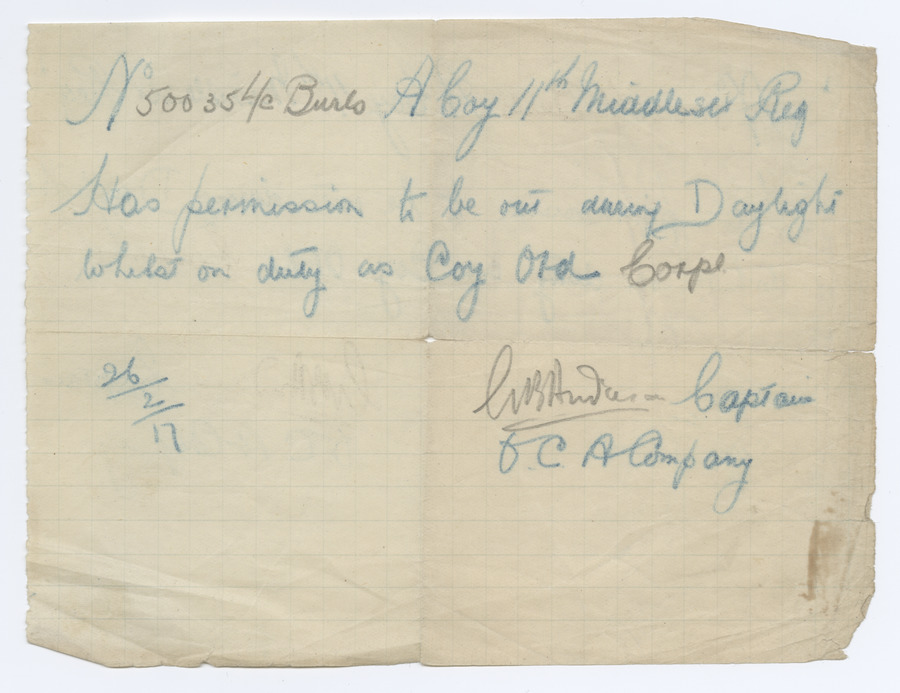 No 500354/c Burls A Coy 11th Middlesex Reg
Has permission to be out during Daylight
Whilst on duty as Coy Ord Corpl
26/2/17
Captain
O.C. A Company